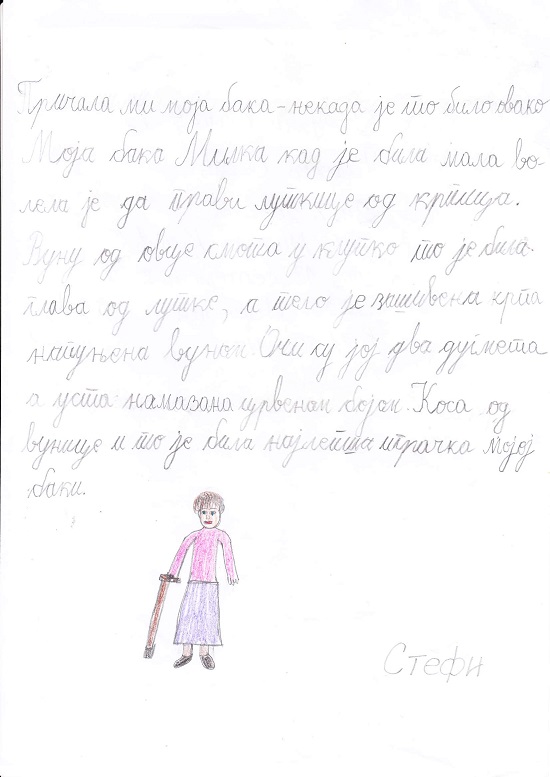 Причала ми моја бака - некада је то било овако
Моја бака Милка кад је била мала во-
лела је да прави луткице од крпица.
Вуну од овце смота у клупко то је била
глава од лутке, а тело је зашивена крпа
напуњена вуном. Очи су јој два дугмета
а уста намазана црвеном бојом. Коса од
вунице и то је била најлепша играчка мојој
баки.
Стефи